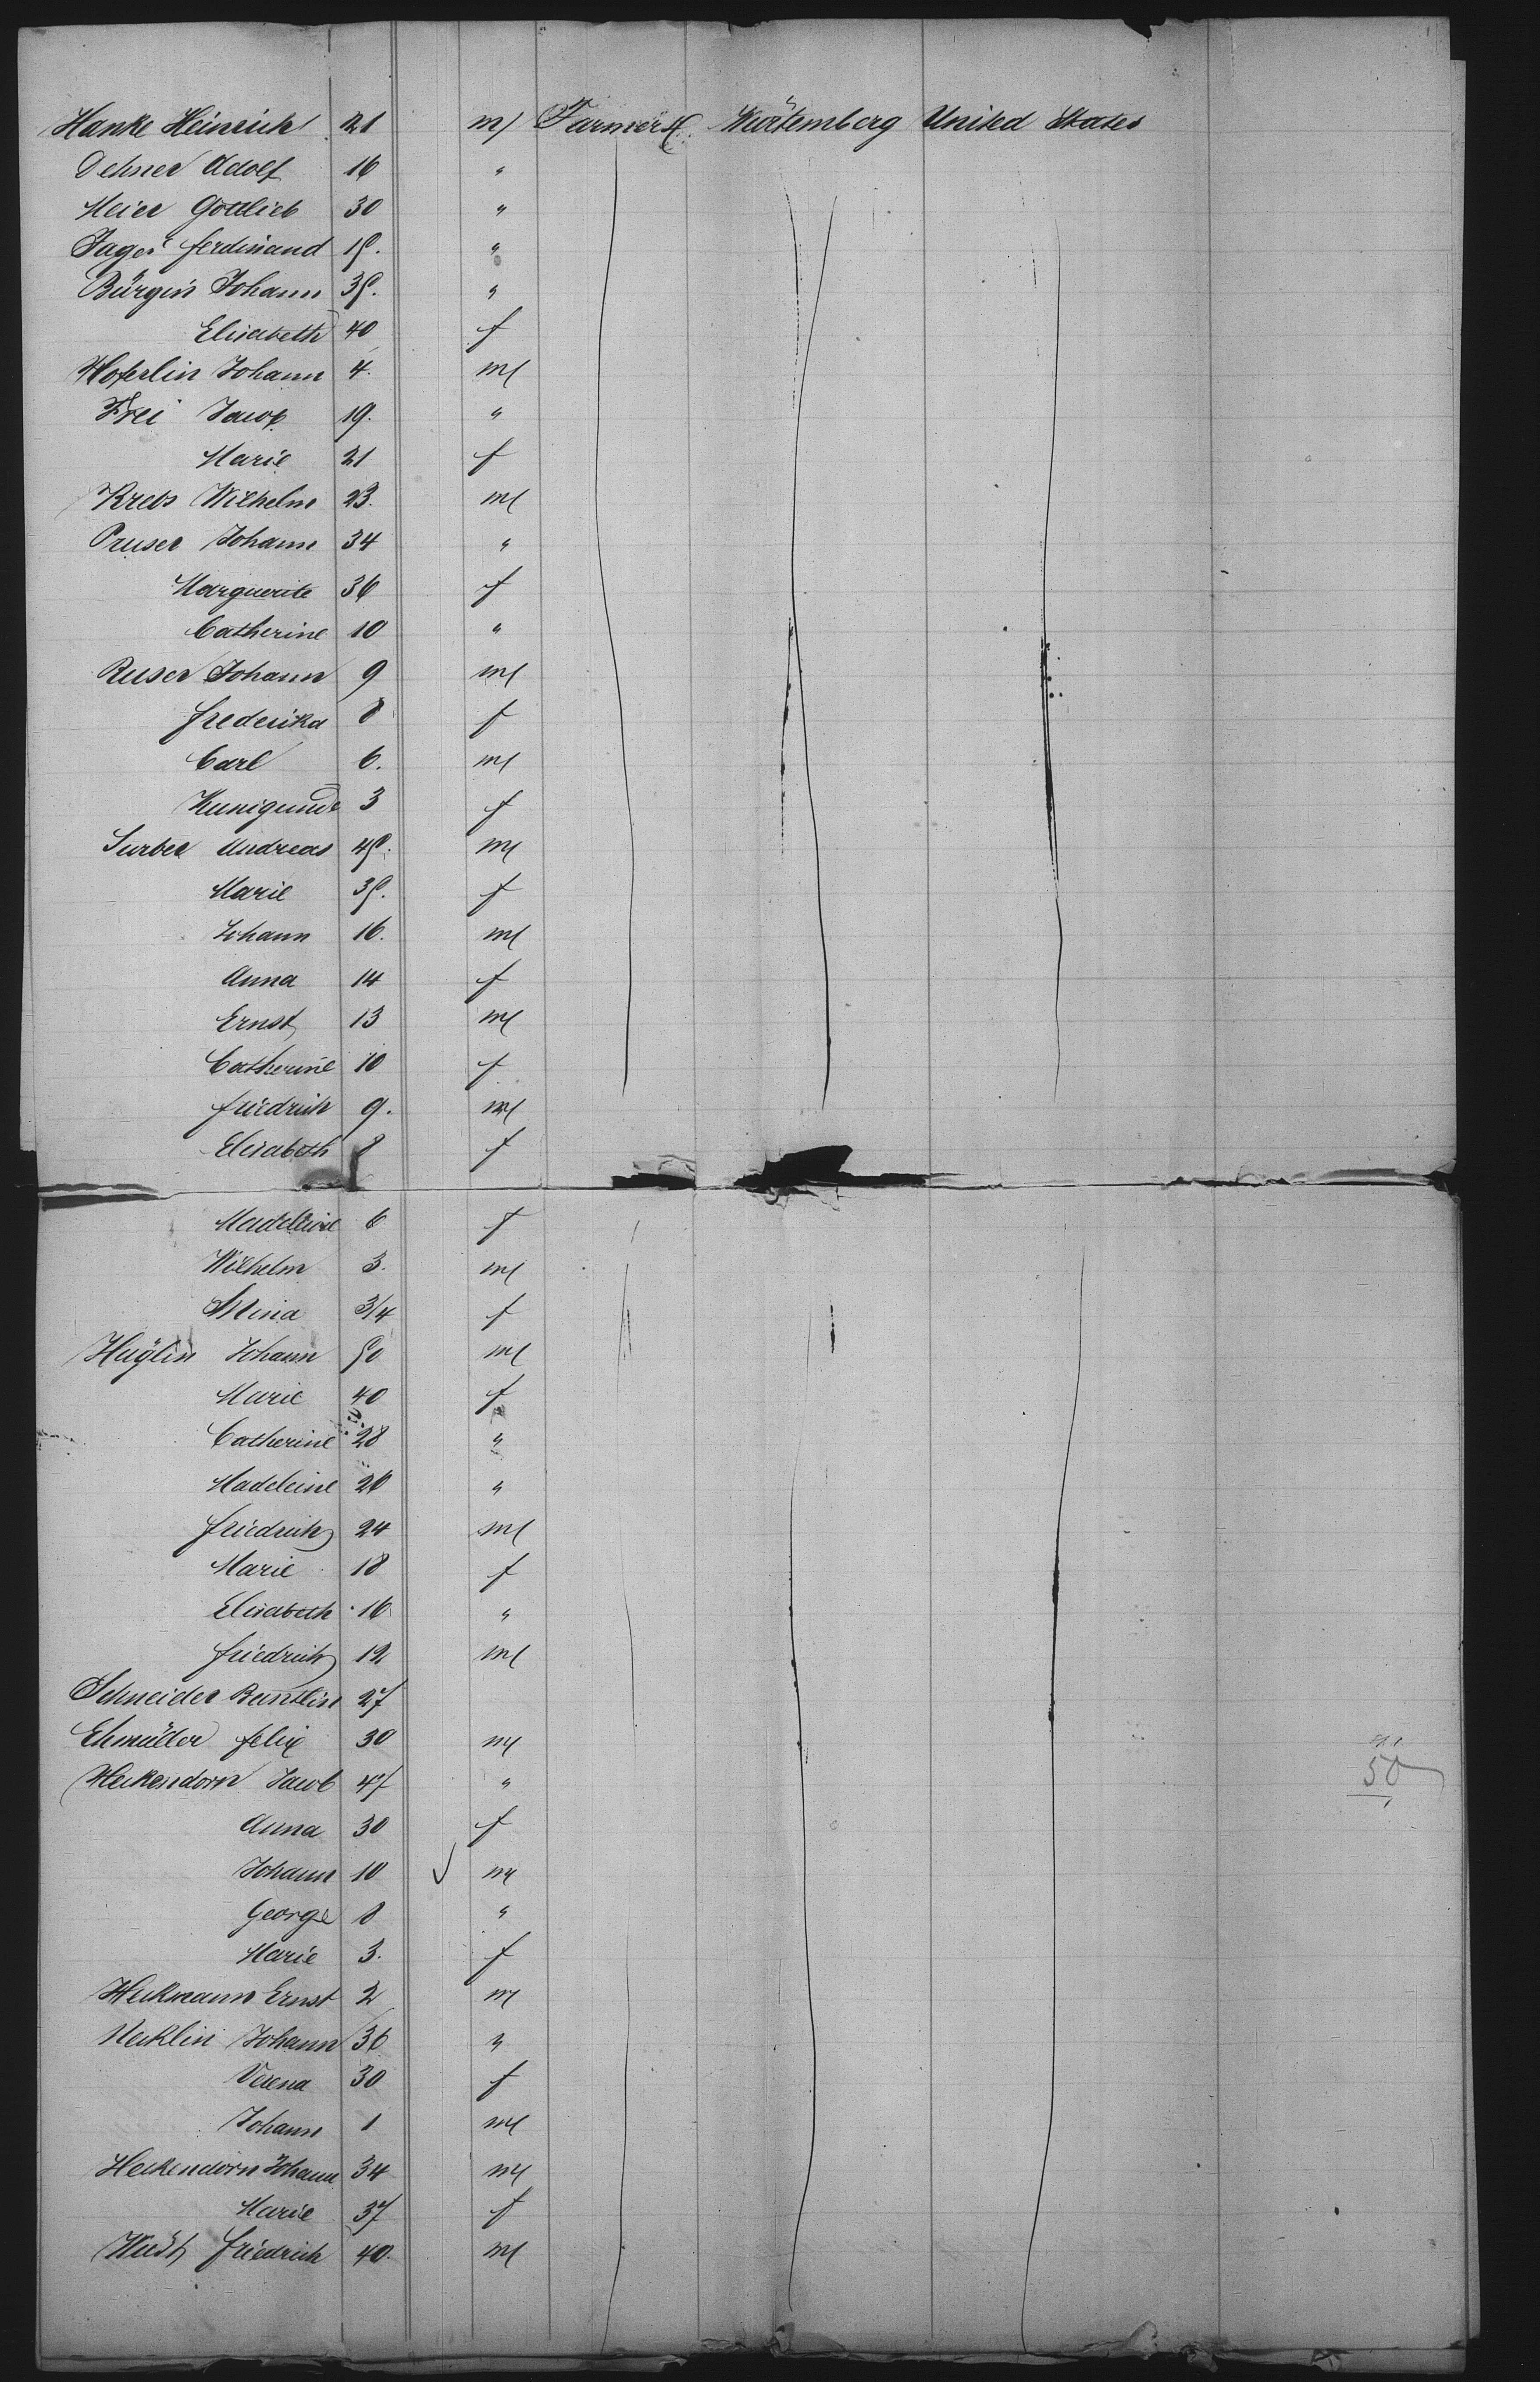 Hanke Heinrich 21 m Farmers Würtemberg United States
Dehner Adolf 16 "
Meier Gottlieb 30 "
Jager ferdinand 15. "
Bürgin Johann 35. "
Elisabeth 40 f
Hoferlin Johann 4. m
Frei Jacob 19. "
Marie 21 f
Krebs Wilhelm 23. m
Pruser Johann 34 "
Marguerite 36 f
Catherine 10 "
Reuser Johann 9 m
frederika 8 f
Carl 6. m
Kunigunde 3 f
Surber Andreas 45. m
Marie 35. f
Johann 16. m
Anna 14 f
Ernst 13 m
Catherine 10 f
friedrich 9. m
Elisabeth 8 f
Madeleine 6 f
Wilhelm 3. m
Mina 3/4 f
Hüglin Johann 50 m
Marie 40 f
Catherine 28 "
Madeleine 20 "
friedrich 24 m
Marie 18 f
Elisabeth 16 "
friedrich 12 m
Schneider 27
Ehmüller felix 30 m
Heckendorn Jacob 47 "
50
Anna 30 f
Johann 10 m
George 8 "
Marie 3. f
Heckmann Ernst 2 m
Necklin Johann 36 "
Verena 30 f
Johann 1 m
Heckendorn Johann 34 m
Marie 37 f
friedrich 40. m